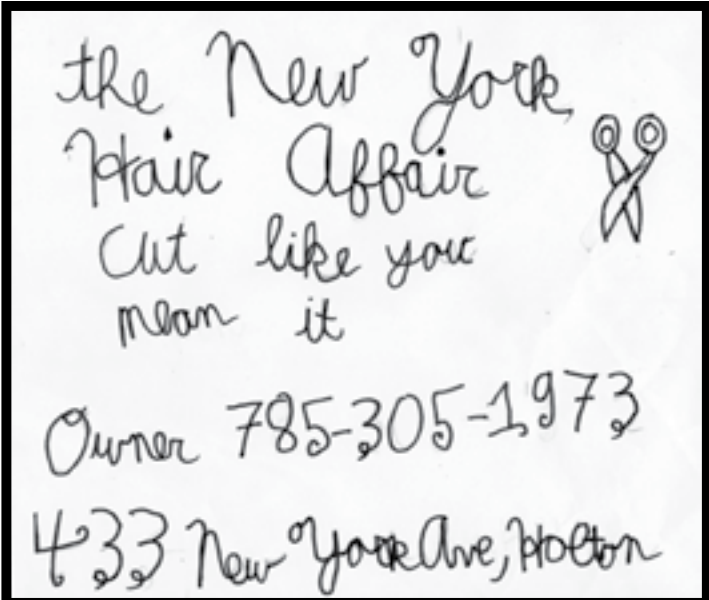 the New York
Hair Affair
Cut like you
mean it
Owner 785-305-1973
433 New York Ave, Holton